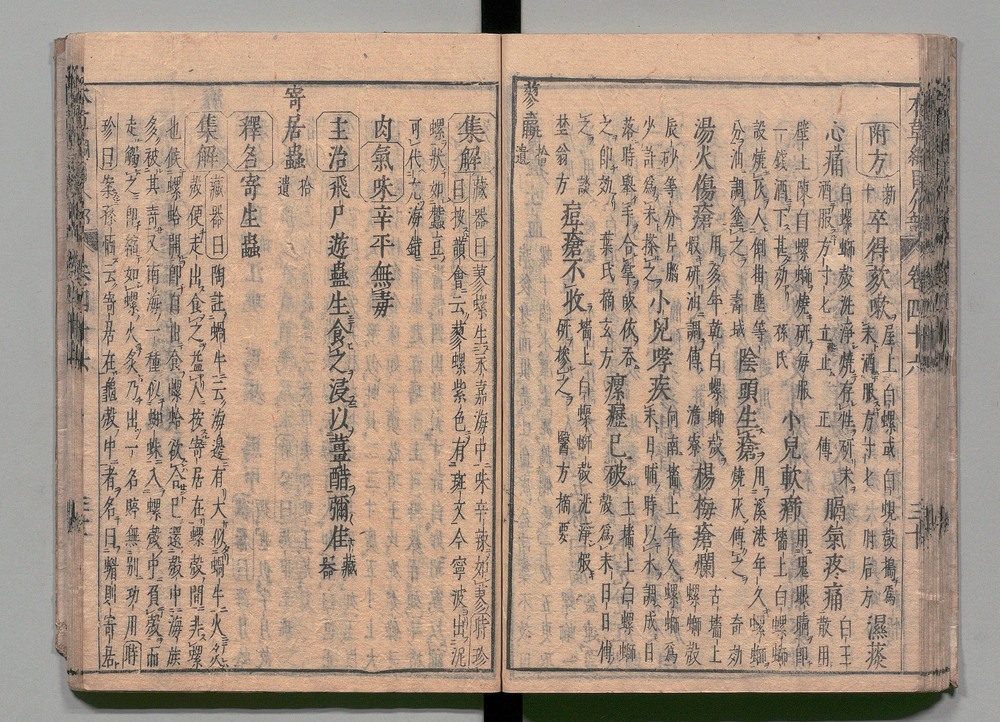 附方 新 卒得欬嗽 屋上白螺或白蜆殼搗爲
末酒服方寸七 肘后方 濕痰
心痛 白螺螄殼洗淨燒存性研末
酒服方寸七立止 正傳 膈氣疼痛 白玉散用
壁上陳白螺螄燒研每服
一錢酒下甚効 孫氏 小兒軟癤 用鬼眼睛即
墻上白螺螄
殼燒灰入倒掛塵等
分油調塗之 壽域 陰頭生瘡 用溪港年久螺螄
燒灰傅之 奇効
湯火傷瘡 用多年乾白螺螄殼
煆研油調傅 澹寮 楊梅瘡爛 古墻上
螺螄殼
辰砂等分片腦
少許爲末搽之 小兒哮疾 向南墻上年久螺螄爲
末日晡時以水調成日
落時舉手合掌皈依吞
之即効 葉氏摘玄方 瘰癧已破 土墻上白螺螄
殼爲末日日傅
之 談
埜翁方 痘瘡不收 墻上白螺螄殼洗淨煆
研摻之 醫方摘要
蓼螺 拾
遺
集解 藏器曰蓼螺生永嘉海中味辛辣如蓼時珍
曰按韻會云蓼螺紫色有斑文今寧波出泥
螺狀如蠶豆
可代充海錯
肉氣味辛平無毒
主治飛尸遊蠱生食之浸以薑醋彌佳 藏
器
寄居蟲 拾
遺
釋名寄生蟲
集解 藏器曰陶註蝸牛云海邊有大似蝸牛火炙
殼便走出食之益人按寄居在螺殼間非螺
也候螺蛤開即自出食螺蛤欲合已還殼中海族
多被其寄又南海一種似蜘蛛入螺殼中負殼而
走觸之即縮如螺火炙乃出一名䗔無別功用時
珍曰案孫恆云寄居在龜殼中者名曰蝞則寄居
本草綱目介部 卷四十六